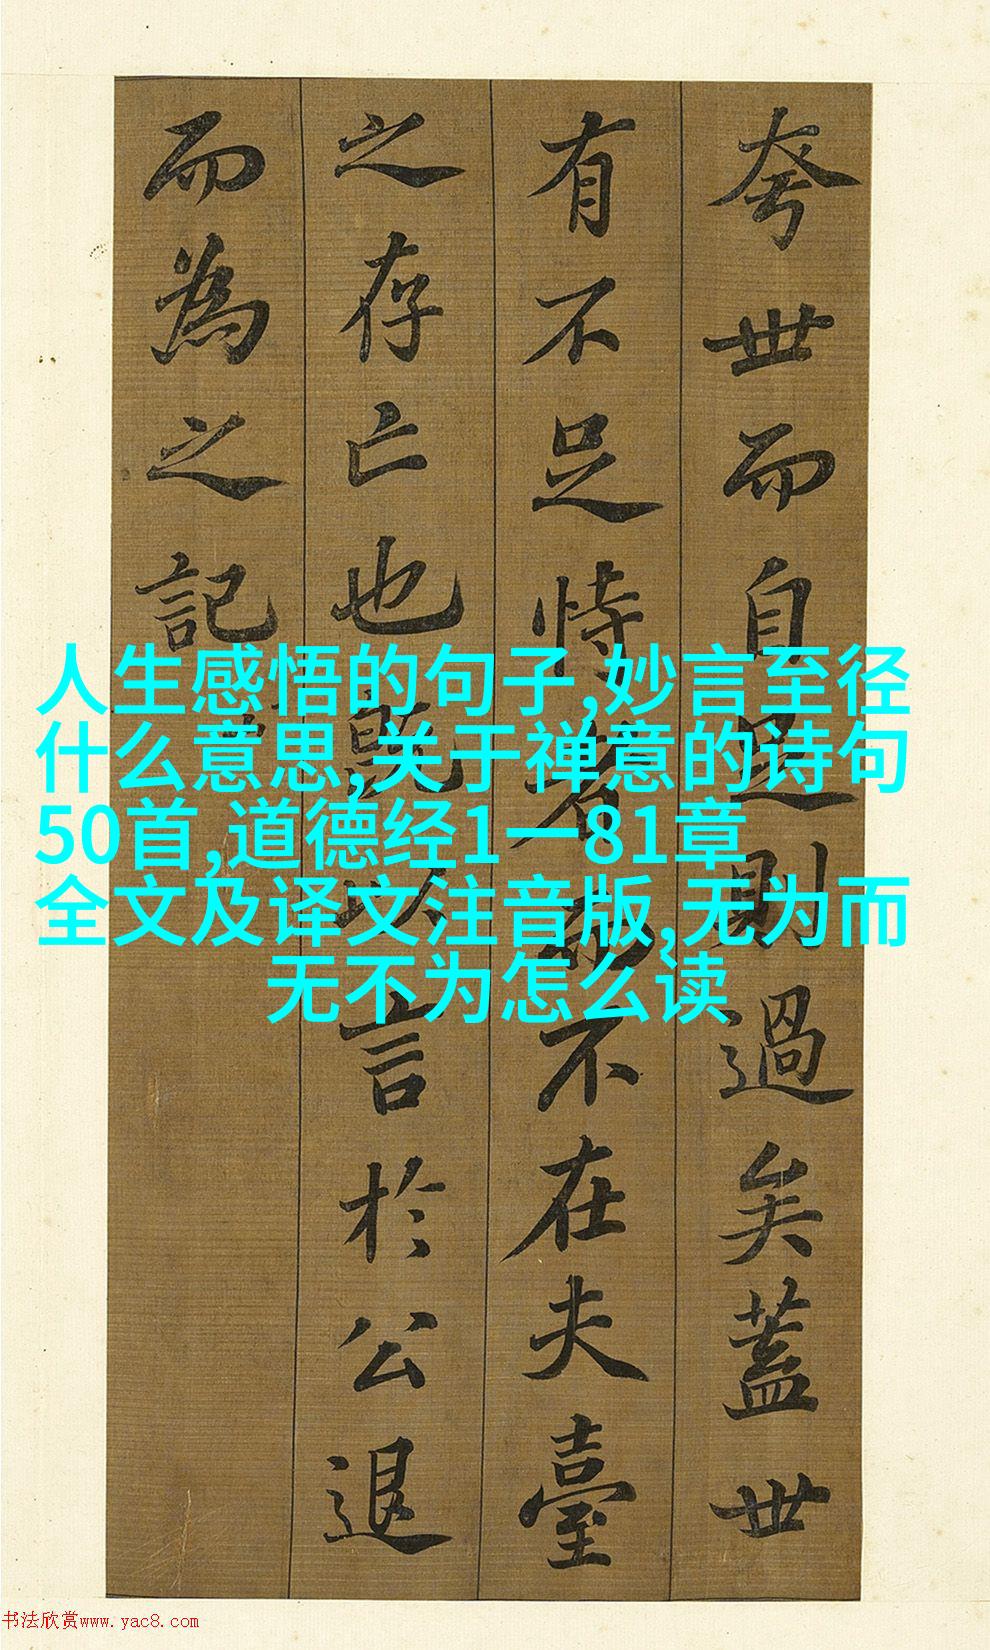 夸世而自足則過矣蓋世
有不足恃者而不在夫臺
之存亡也既以言於公退
而為之記
人生感悟的句子,妙言至径
什么意思,关于禅意的诗句
50首,道德经1一81章
全文及译文注音版,无为而
无不为怎么读
书法欣赏www.yac8.com